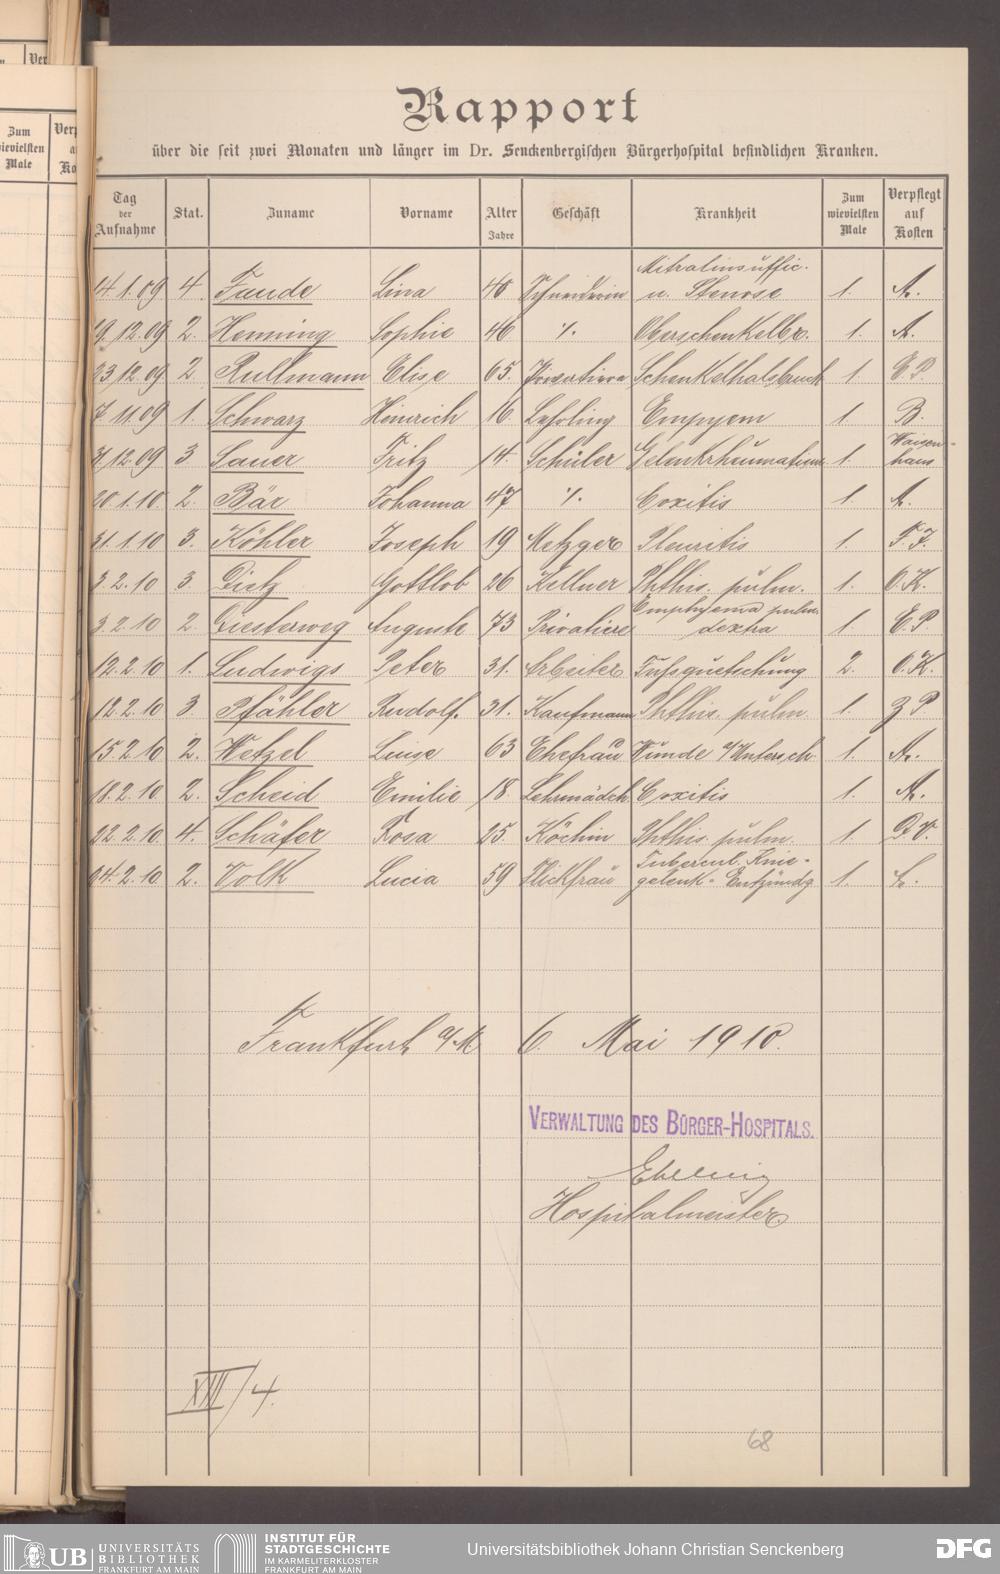 Rapport
über die seit zwei Monaten und länger im Dr. Senckenbergischen Bürgerhospital befindlichen Kranken.
Tag der Aufnahme Stat. Zuname Vorname Alter Jahre Geschäft Krankheit Zum wievielsten Male Verpflegt auf Kosten
Mitralinsuffic.
14.1.09 4. Faude Lina 40 Schneiderin u. Stenose 1. A.
9.12.09 2. Henning Sophie 46 ·/. Oberschenkelbr. 1. A.
23.12.09 2. Rullmann Elise 65. Privatiere Schenkelhalsbruch 1. E.P.
7.11.09 1. Schwarz Heinrich 16. Lehrling Empyem 1. B.
Waisen-
31.12.09 3 Sauer Fritz 14. Schüler Gelenkrheumatism. 1. haus
20.1.10. 2. Bär Johanna 47 ·/. Coxitis 1. A.
31.1.10 3. Köhler Joseph 19 Metzger Pleuritis 1. F.F.
3.2.10 3. Dietz Gottlob 26 Kellner Phthis. pulm. 1. O.K.
Emphysema pulm.
3.2.10 2. Diesterweg Auguste 73 Privatiere dextra 1. E.P.
12.2.10 1. Ludwigs Peter 31. Arbeiter Fußquetschung 2. O.K.
12.2.10 3 Pfähler Rudolf. 31. Kaufmann Phthis. pulm. 1. P.
15.2.10 2. Wetzel Luise 63 Ehefrau Wunde a/Untersch. 1. A.
18.2.10 2. Scheid Emilie 18. Lehrmädch. Coxitis 1. A.
22.2.10. 4. Schäfer Rosa 25 Köchin Phthis. pulm. 1.
Tubercul. Knie-
24.2.10 2. Volk Lucia 59 Flickfrau gelenk-Entzündg 1.
Frankfurt a/M 6. Mai 1910.
VERWALTUNG DES BÜRGER-HOSPITALS.
Hospitalmeister
XIII/4.
68
Zum
wievielsten
Male
UB UNIVERSITÄTS
BIBLIOTHEK
FRANKFURT AM MAIN
INSTITUT FÜR
STADTGESCHICHTE
IM KARMELITERKLOSTER
FRANKFURT AM MAIN
Universitätsbibliothek Johann Christian Senckenberg
DFG